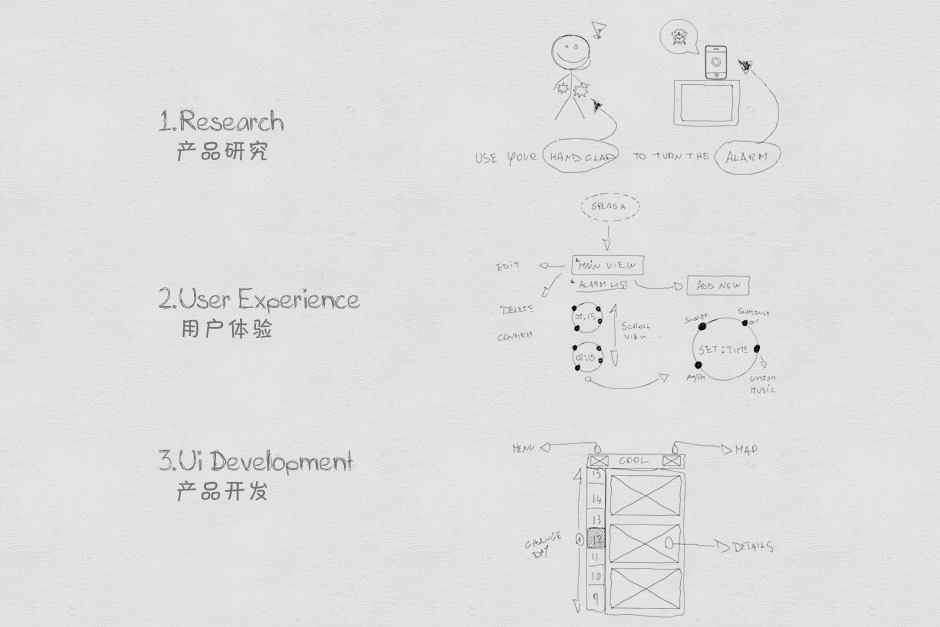 1.Research
产品研究
USE YOUR HAND CLAP TO TURN THE ALARM
2.User Experience
用户体验
SPLASH
EDIT
MAIN VIEW
ALARM LIST
ADD NEW
DELETE
CONFIRM
01:15
SCROLL
VIEW
02:15
SNOOZE
SCHEDULE
SET:TIME
AM/PM
CUSTOM
MUSIC
3.Ui Development
产品开发
MENU
MAP
COOL
15
14
13
12
11
10
9
CHANGE
DAY
DETAILS